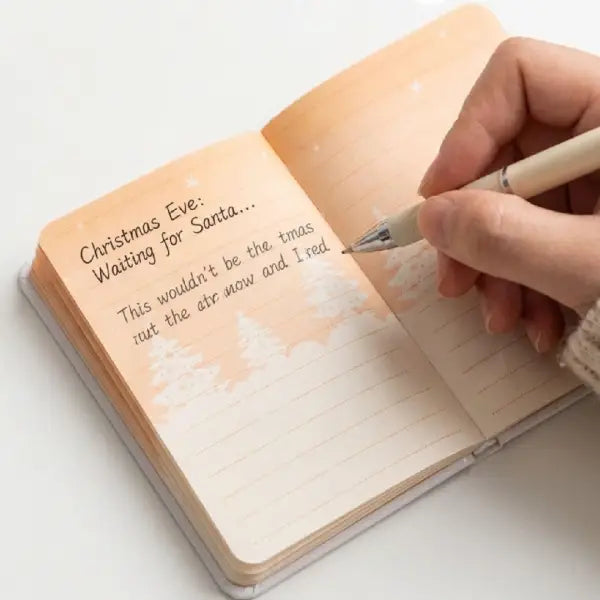 Christmas Eve:
Waiting for Santa...
This wouldn't be the tmas
the and I red